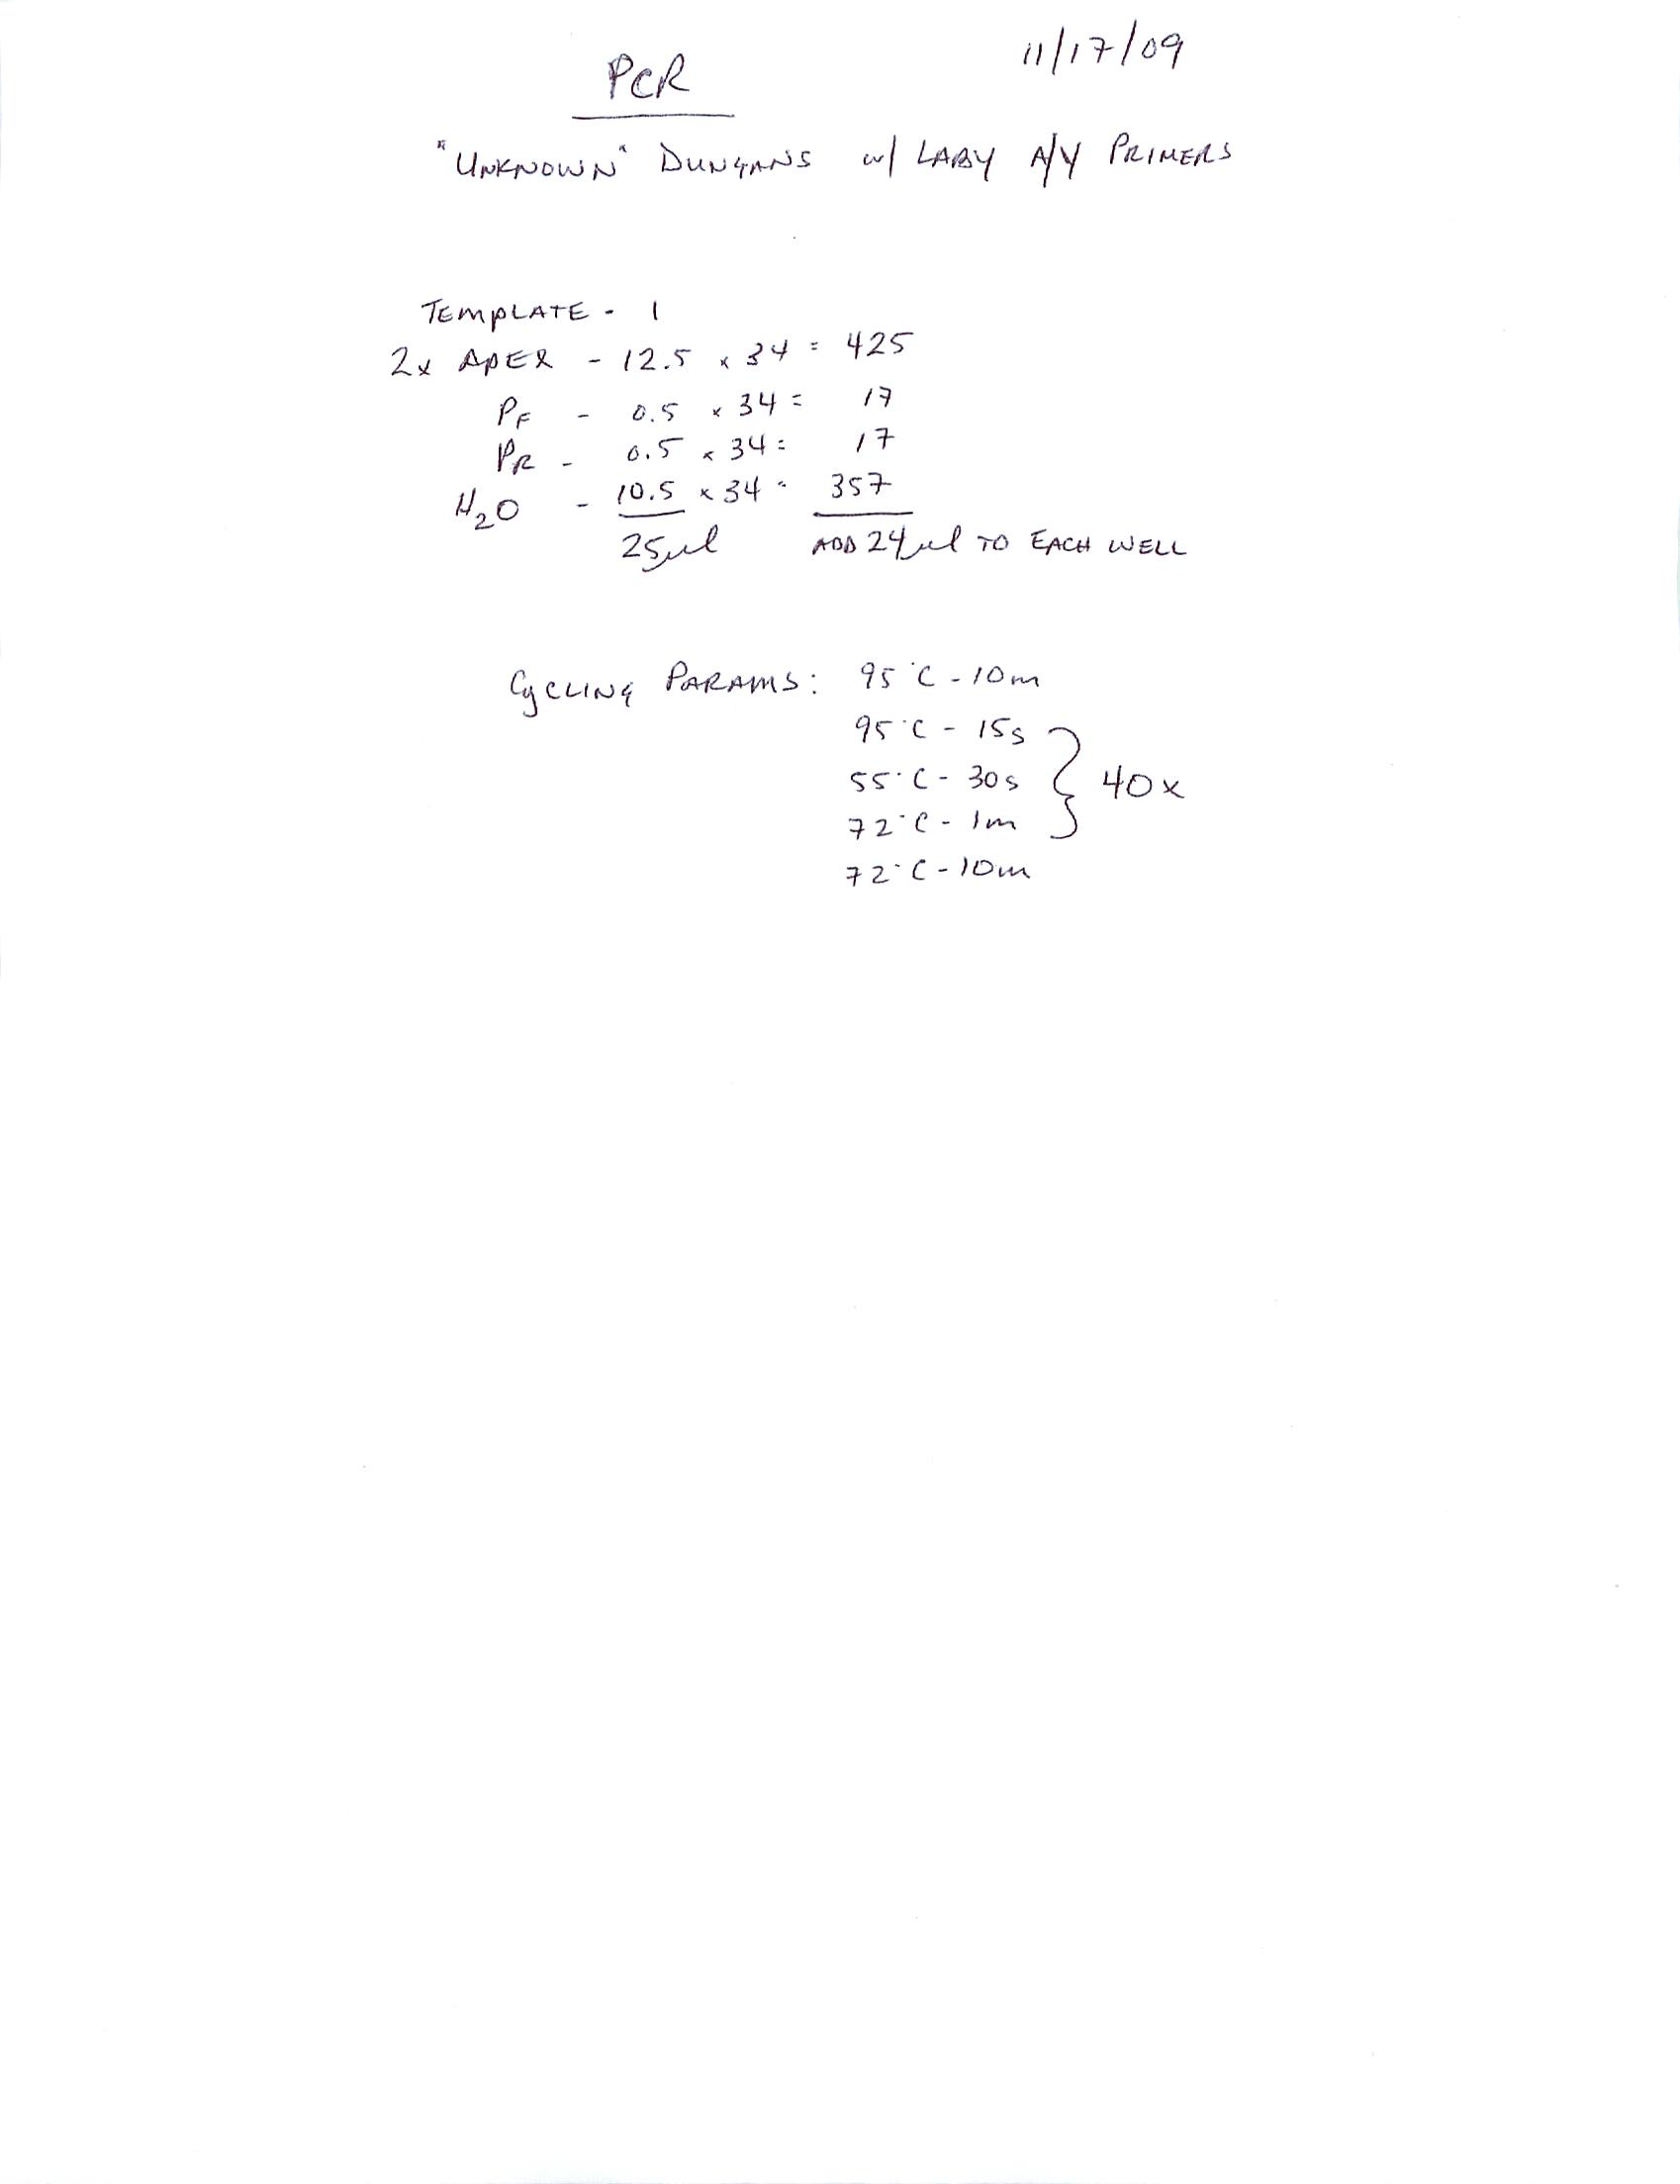 PCR
11/17/09
"UNKNOWN" DUNGANS w/ LABY A/Y PRIMERS
TEMPLATE - 1
2x APEX - 12.5 x 34 = 425
PF - 0.5 x 34 = 17
PR - 0.5 x 34 = 17
H2O - 10.5 x 34 = 357
25µl ADD 24µl TO EACH WELL
CYCLING PARAMS: 95°C - 10m
95°C - 15s
55°C - 30s } 40x
72°C - 1m
72°C - 10m